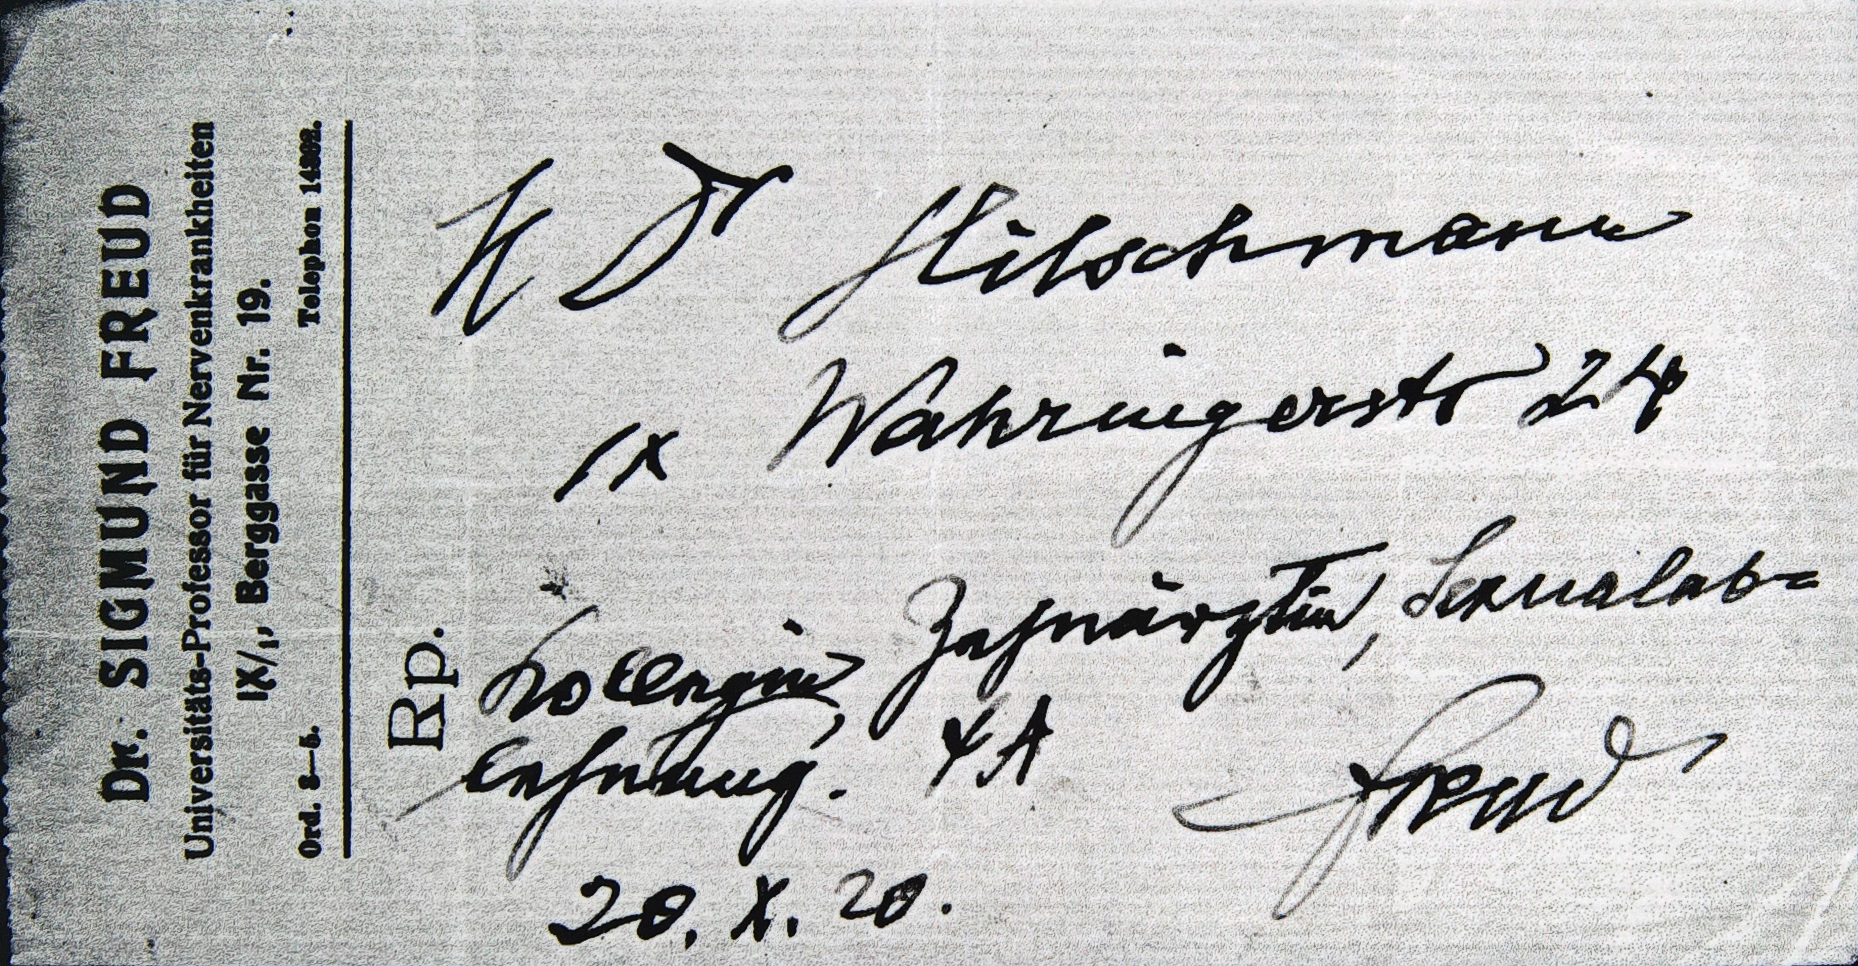 Dr. SIGMUND FREUD
Universitäts-Professor für Nervenkrankheiten
IX/1, Berggasse Nr. 19.
Ord. 3—5. Telephon
Rp.
H Dr Hitschmann
IX Währingerstr 24
Kollegin, Zahnärztin, Sexualab=
lehnung.
Freud
20. X. 20.